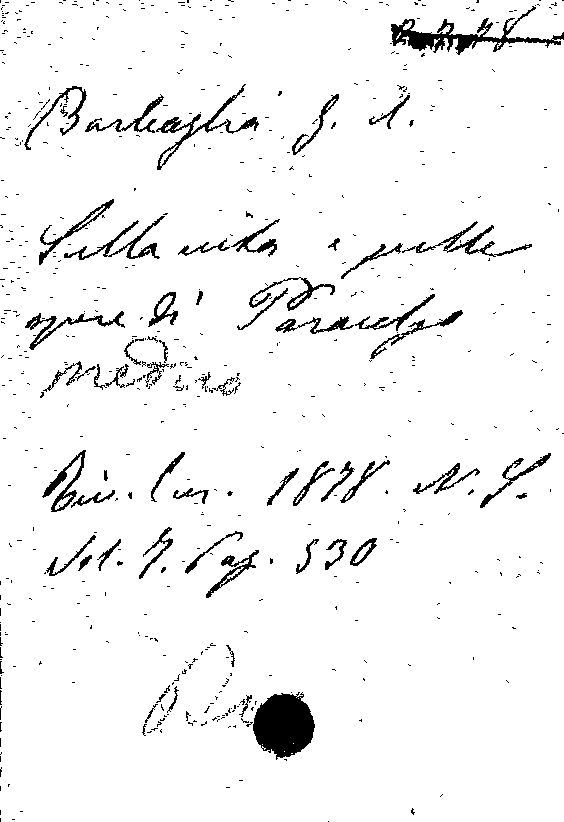 Barbaglia G. A.
Sulla vita e sulle
opere di Paracelso
medico
Riv. Eur. 1878. N. S.
Vol. 7. Pag. 530